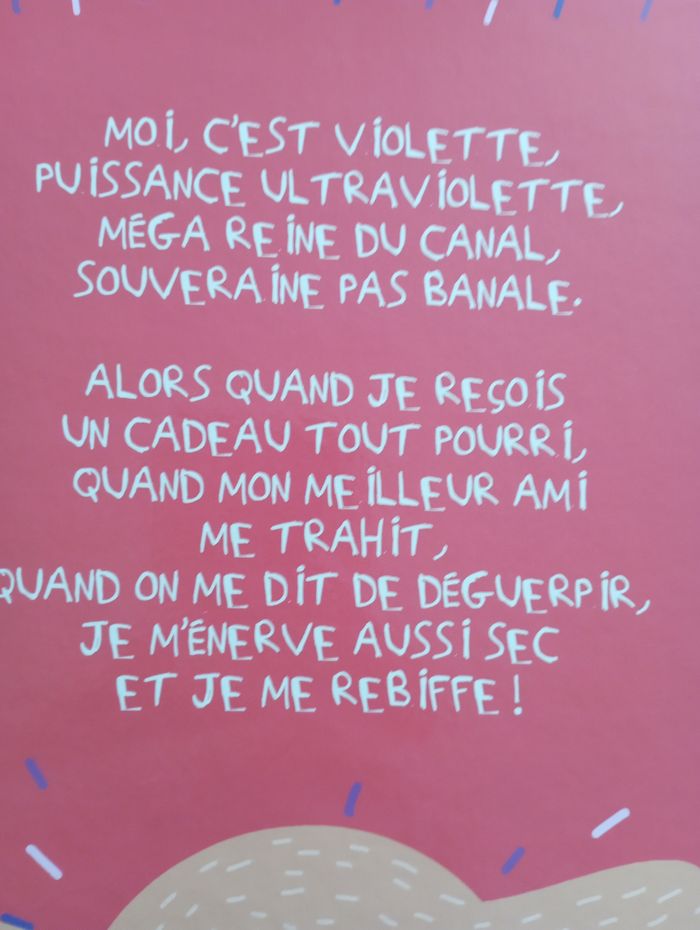 MOI, C'EST VIOLETTE,
PUISSANCE ULTRAVIOLETTE,
MÉGA REINE DU CANAL,
SOUVERAINE PAS BANALE.
ALORS QUAND JE REÇOIS
UN CADEAU TOUT POURRI,
QUAND MON MEILLEUR AMI
ME TRAHIT,
QUAND ON ME DIT DE DÉGUERPIR,
JE M'ÉNERVE AUSSI SEC
ET JE ME REBIFFE !